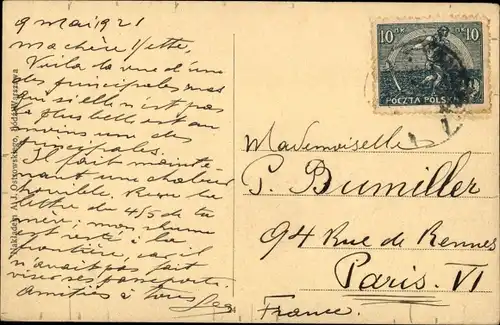 9 mai 1921
Ma chère Yette,
Voila la vue d'une
des principales rues
qui si elle n'est pas
la plus belle est au
moins une des
principales.
Il fait mainte-
nant une chaleur
horrible. Reçu la
lettre du 4/5 de ta
mère. mon rhume
est resté à la
frontière, car il
n'avait pas fait
viser ses passeports.
Amitiés à tous
Nakładem J. Ostrowskiego, Łódź-Warszawa
10 10
POCZTA POLSKA
Mademoiselle
P. Bumiller
94 Rue de Rennes
Paris. VI
France.